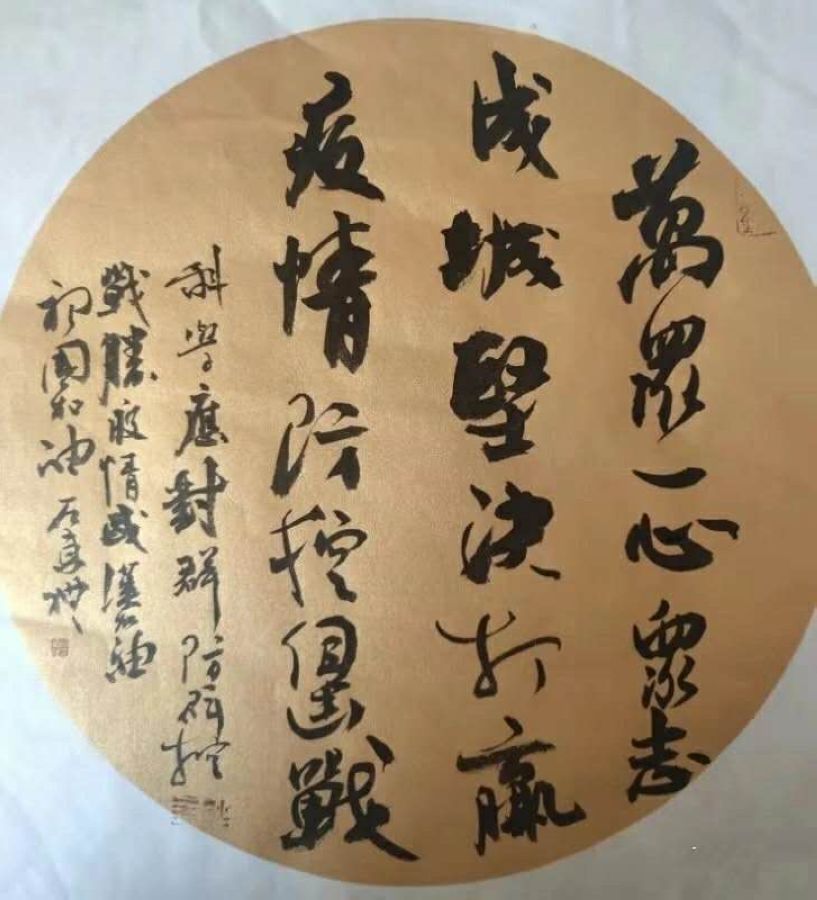 萬眾一心衆志
成城堅決打贏
疫情防控戰
科學應對群防群控
戰勝疫情武漢加油
祖國加油